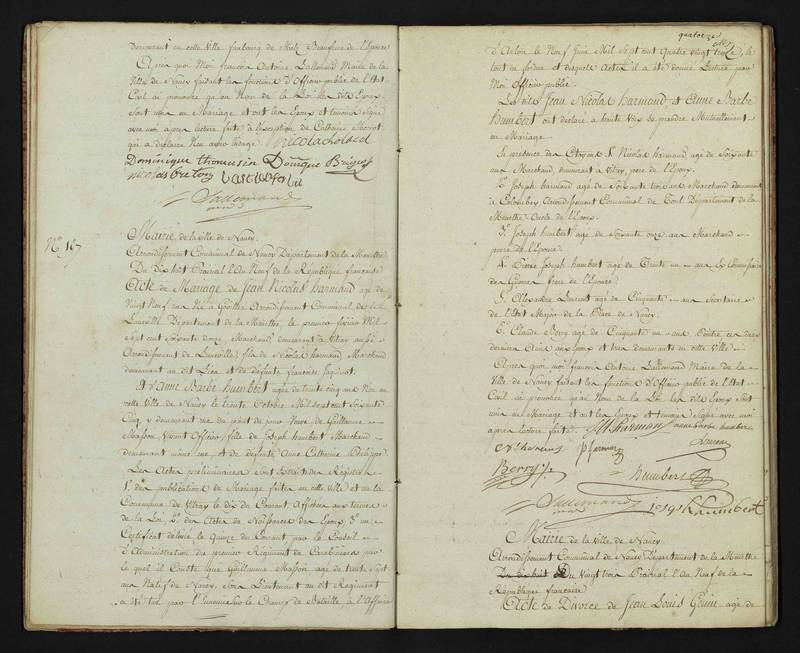 demeurant en cette Ville faubourg de Metz Beaufrere de l'Epouse
Après quoi Moi françois Antoine Lallemand Maire de la
Ville de Nancy faisant les fonctions d'Officier public de l'Etat
Civil ai prononcé qu'au Nom de la Loi les dits Epoux
sont unis en Mariage et ont les Epoux et temoins Signé
avec moi après lecture faite à l'exception de Catherine
qui a déclaré Neu avoir lusage
Dominique thomassin Dominique
nicolas
Lallemand
No 157
Mairie de la ville de Nancy.
Arrondissement Communal de Nancy Département de la Meurthe
Du Dix huit Prairial l'An Neuf de la République française
Acte de Mariage de Jean Nicolas harmand agé de
Vingt Neuf ans Né à Arrondissement Communal de
Lunéville Département de la Meurthe, le premier février Mil
sept cent soixante douze, Marchand, demeurant à Vitrey aussi
Arrondissement de Lunéville; fils de Nicolas harmand Marchand
demeurant au dit Lieu et de défunte françoise Jaquinot.
Et d'Anne Barbe humbert agée de trente cinq ans Née en
cette Ville de Nancy le trente Octobre Mil sept cent Soixante
Cinq y demeurant rue du point du jour Veuve de Guillaume
Masson Vivant Officier fille de Joseph humbert Marchand
demeurant même rue et de défunte Anne Catherine Philippe
Les Actes préliminaires sont Extraits des Registres
1o des publications de Mariage faites en cette Ville et en la
Commune de Vitrey le dix du Courant Affichées aux termes
de la Loi, 2o des Actes de Naissances des Epoux, 3o un
Certificat délivré le Quinze du Courant par le Conseil
d'Administration du premier Régiment de Carabiniers par
le quel il Conste que Guillaume Masson agé de trente sept
ans Natif de Nancy, Sous Lieutenant au dit Régiment
a été tué par l'Ennemi sur le Champ de Bataille à l'Affaire
quatorze
d'Arlon le Neuf Juin Mil Sept cent Quatre vingt treize, le
tout en forme et desquels Actes il a été donné Lecture par
Moi Officier public.
Les dits Jean Nicolas harmand et Anne Barbe
humbert ont déclaré à haute Voix se prendre Mutuellement
en Mariage
En présence des Citoyens 1o Nicolas harmand agé de Soixante
ans Marchand demeurant à Vitrey, pere de l'Epoux.
2o Joseph harmand agé de Soixante trois ans Marchand demeurant
à Colombey Arrondissement Communal de Toul Département de la
Meurthe Oncle de l'Epoux.
3o Joseph humbert agé de Soixante onze ans Marchand
pere de l'Epouse
4o Pierre Joseph humbert agé de Trente un ans Ex Commissaire
des Guerres frere de l'Epouse
5o Alexandre Laurent agé de Cinquante ans Secretaire
de l'Etat Major de la Place de Nancy
6o Claude Berry agé de Cinquante un ans Peintre ces deux
derniers Amis aux Epoux et tous demeurants en cette Ville
Après quoi moi françois Antoine Lallemand Maire de la
Ville de Nancy faisant les fonctions d'Officier public de l'Etat
Civil ai prononcé qu'au Nom de la Loi les dits Epoux sont
unis en Mariage et ont les Epoux et temoins Signé avec moi
après lecture faite.
anne barbe humbert
Berry
humbert
Lallemand
joseph humbert
Mairie de la Ville de Nancy
Arrondissement Communal de Nancy Département de la Meurthe
Du dix huit Du Vingt trois Prairial l'An Neuf de la
République française
Acte de Divorce de Jean Louis agé de